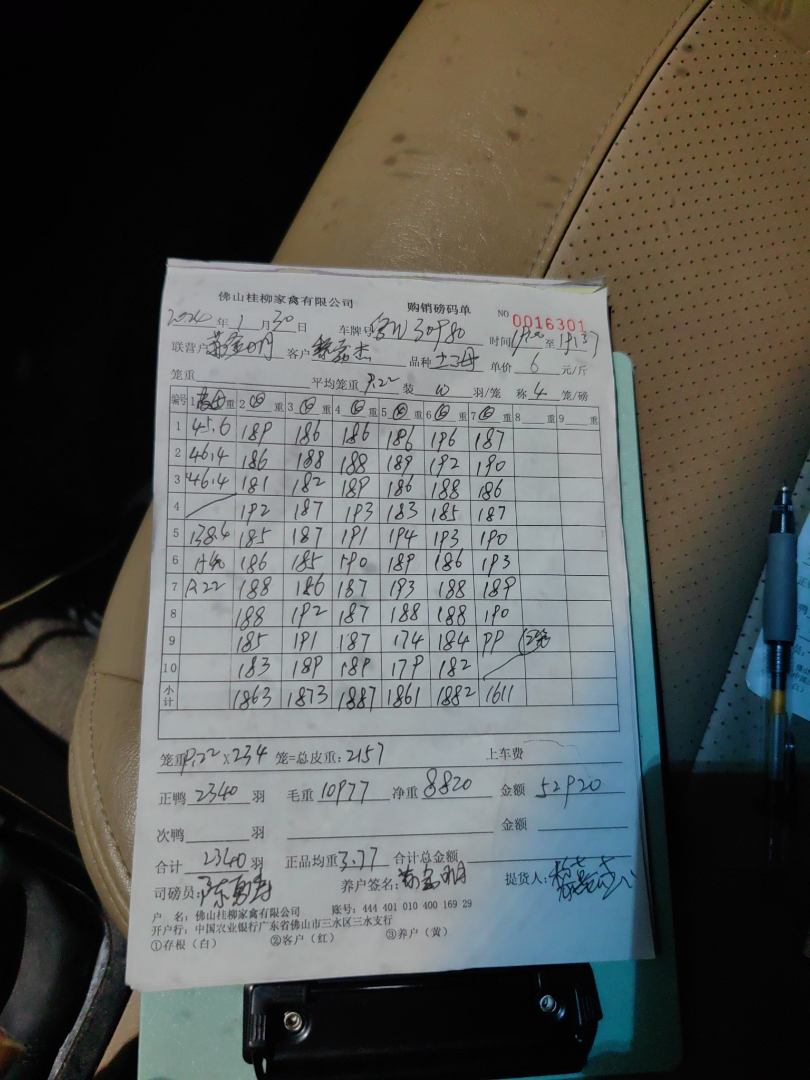 佛山桂柳家禽有限公司 购销磅码单 NO 0016301
2024年1月30日 车牌号 W30980 时间 至
联营户 客户 杰 品种 单价 6 元/斤
笼重 平均笼重 9.22 装 10 羽/笼 称 4 笼/磅
编号 1 重 2 重 3 重 4 重 5 重 6 重 7 重 8 重 9 重
1 45.6 189 186 186 186 196 187
2 46.4 186 188 188 189 192 190
3 46.4 181 182 189 186 188 186
4 192 187 193 183 185 187
5 138.4 185 187 191 194 193 190
6 186 185 190 189 186 193
7 9.22 188 186 187 193 188 189
8 188 192 187 188 188 190
9 185 191 187 174 184 99
10 183 189 189 179 182
小计 1863 1873 1887 1861 1882 1611
笼重 9.22 x 234 笼=总皮重: 2157 上车费
正鸭 2340 羽 毛重 10977 净重 8820 金额 52920
次鸭 羽 金额
合计 2340 羽 正品均重 3.77 合计总金额
司磅员: 陈 养户签名: 提货人:
户 名: 佛山桂柳家禽有限公司 账号: 444 401 010 400 169 29
开户行: 中国农业银行广东省佛山市三水区三水支行
①存根(白) ②客户(红) ③养户(黄)